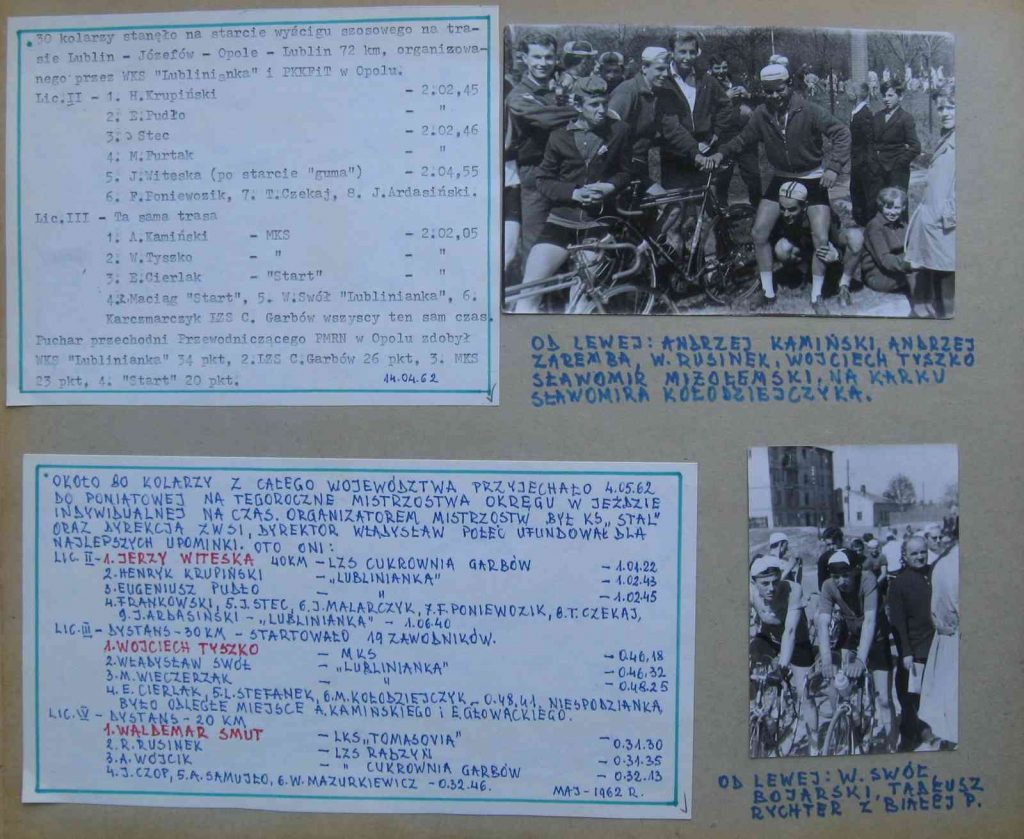 30 kolarzy stanęło na starcie wyścigu szosowego na tra-
sie Lublin - Józefów - Opole - Lublin 72 km, organizowa-
nego przez WKS "Lublinianka" i PKKFiT w Opolu.
Lic.II - 1. H.Krupiński - 2.02,45
2. E.Pudło - "
3. Stec - 2.02,46
4. M.Furtak - "
5. J.Witeska (po starcie "guma") - 2.04,55
6. F.Poniewozik, 7. T.Czekaj, 8. J.Ardasiński.
Lic.III - Ta sama trasa
1. A.Kamiński - MKS - 2.02,05
2. W.Tyszko - " - "
3. E.Cierlak - "Start" - "
4.R.Maciąg "Start", 5. W.Swół "Lublinianka", 6.
Karczmarczyk LZS C. Garbów wszyscy ten sam czas.
Puchar przechodni Przewodniczącego PMRN w Opolu zdobył
WKS "Lublinianka" 34 pkt, 2.LZS C.Garbów 26 pkt, 3. MKS
23 pkt, 4. "Start" 20 pkt. 14.04.62
OD LEWEJ: ANDRZEJ KAMIŃSKI, ANDRZEJ
ZAREMBA, W. RUSINEK, WOJCIECH TYSZKO
SŁAWOMIR MIZOŁEMSKI, NA KARKU
SŁAWOMIRA KOŁODZIEJCZYKA.
OKOŁO 80 KOLARZY Z CAŁEGO WOJEWÓDZTWA PRZYJECHAŁO 4.05.62
DO PONIATOWEJ NA TEGOROCZNE MISTRZOSTWA OKRĘGU W JEŹDZIE
INDYWIDUALNEJ NA CZAS. ORGANIZATOREM MISTRZOSTW BYŁ KS „STAL"
ORAZ DYREKCJA ZWSI, DYREKTOR WŁADYSŁAW POŁEĆ UFUNDOWAŁ DLA
NAJLEPSZYCH UPOMINKI. OTO ONI:
LIC. II - 1. JERZY WITESKA 40KM - LZS CUKROWNIA GARBÓW - 1.01.22
2. HENRYK KRUPIŃSKI - „LUBLINIANKA" - 1.02.43
3. EUGENIUSZ PUDŁO - " - 1.02.45
4. FRANKOWSKI, 5. J. STEC, 6. J. MALARCZYK, 7. F. PONIEWOZIK, 8. T. CZEKAJ,
9. J. ARDASIŃSKI - „LUBLINIANKA" - 1.06.40
LIC. III - DYSTANS - 30 KM - STARTOWAŁO 19 ZAWODNIKÓW.
1. WOJCIECH TYSZKO - MKS - 0.46,18
2. WŁADYSŁAW SWÓŁ - „LUBLINIANKA" - 0.46,32
3. M. WIECZERZAK - " - 0.48.25
4. E. CIERLAK, 5. L. STEFANEK, 6. M. KOŁODZIEJCZYK - 0.48,41. NIESPODZIANKĄ
BYŁO ODLEGŁE MIEJSCE A. KAMIŃSKIEGO i E. GŁOWACKIEGO.
LIC. IV - DYSTANS - 20 KM
1. WALDEMAR SMUT - LKS „TOMASOVIA" - 0.31.30
2. R. RUSINEK - LZS RADZYŃ - 0.31.35
3. A. WÓJCIK - " CUKROWNIA GARBÓW - 0.32.13
4. J. CZOP, 5. A. SAMUJŁO, 6. W. MAZURKIEWICZ - 0.32.46. MAJ - 1962 R.
OD LEWEJ: W. SWÓŁ
BOJARSKI, TADEUSZ
RYCHTER Z BIAŁEJ P.